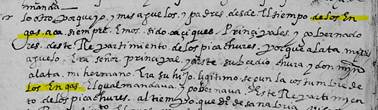 manda
lo otro porque yo, mis aguelos, y padres desde El tiempo de los En
gas aca siempre Emos sido caçiques Prinçipales y gobernado
res deste Repartimiento de los picachures, porque alata mi a
guelo Era señor prinçipal y a este subçedio ahura y don min
alata, mi hermano Era su hijo ligitimo segun la costumbre de
los Engas El qual mandaua y gobernaua Este Repartimien
to de los picachures al tiempo que